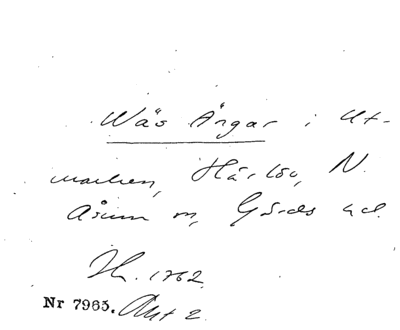 Wäs Ängar i Ut-
marken, Härlöv, N.
Åsum m, Gärds hd.
H. 1762.
Nr 7965. Akt 2.